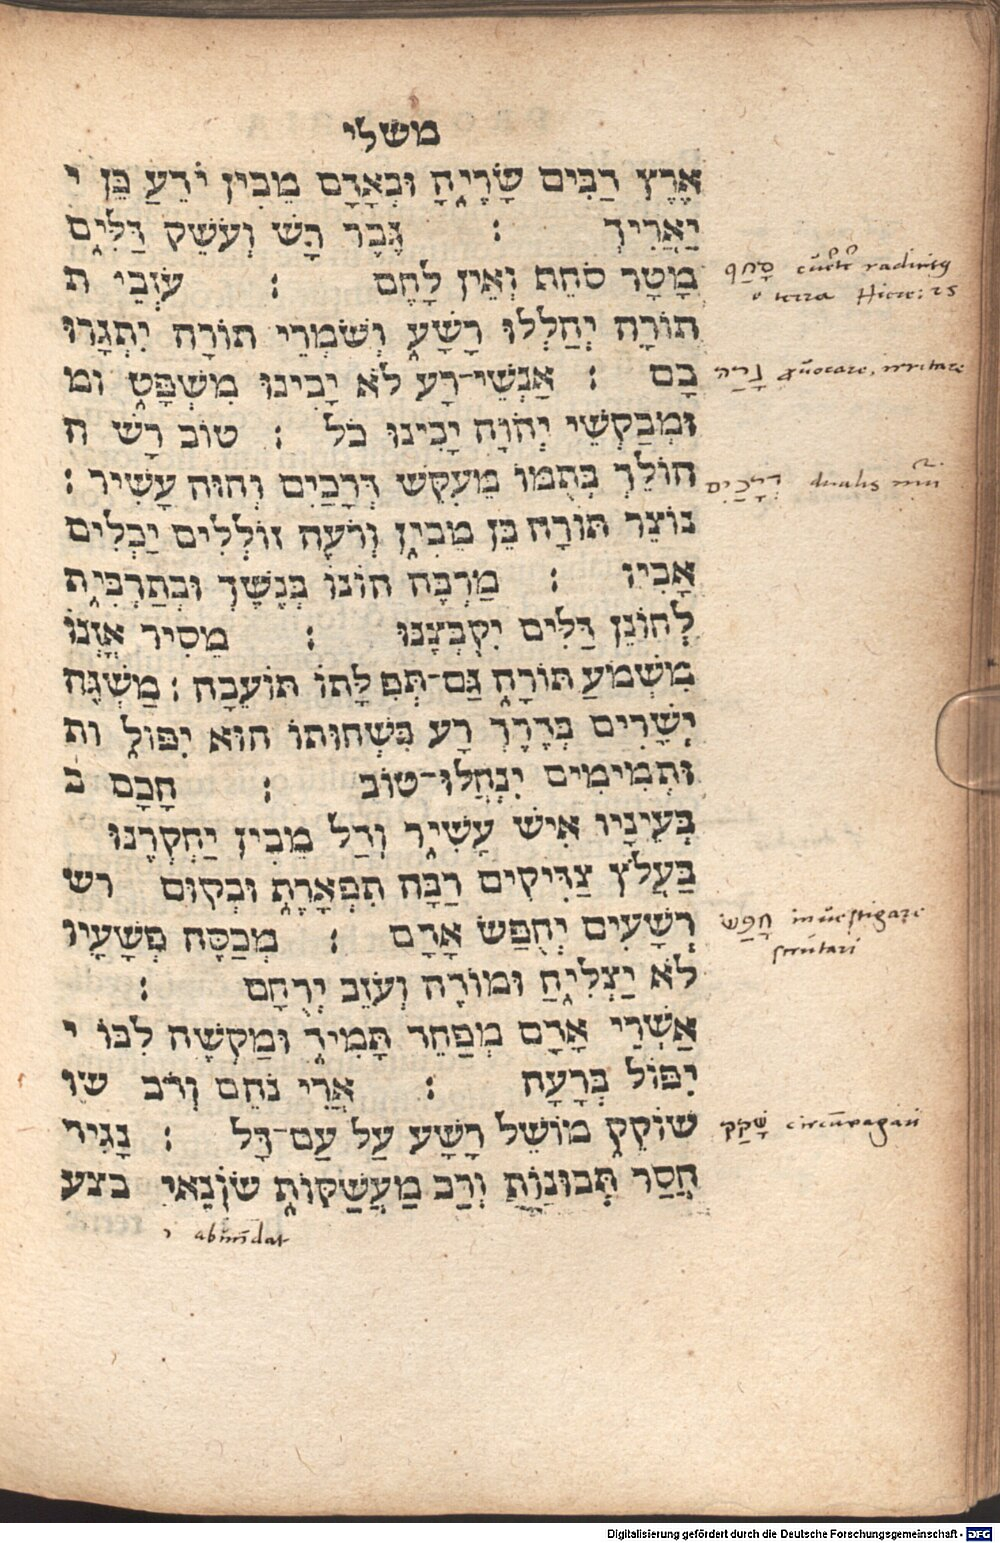 משלי
אֶרֶץ רַבִּים שָׂרֶיהָ וּבְאָדָם מֵבִין יֹדֵעַ כֵּן י
יַאֲרִיךְ : גֶּבֶר רָשׁ וְעֹשֵׁק דַּלִּים
מָטָר סֹחֵת וְאֵין לָחֶם : עֹזְבֵי ת
תוֹרָה יְחַלְלוּ רָשָׁע וְשֹׁמְרֵי תוֹרָה יִתְגָרוּ
בָם : אַנְשֵׁי־רָע לֹא יָבִינוּ מִשְׁפָּט ומ
וּמְבַקְשֵׁי יְהוָה יָבִינוּ כֹל : טוֹב רָשׁ ה
הוֹלֵךְ בְּתֻמּוֹ מֵעִקֵּשׁ דְּרָכַיִם וְהוּא עָשִׁיר :
נוֹצֵר תּוֹרָה בֵּן מֵבִין וְרֹעֶה זוֹלְלִים יַכְלִים
אָבִיו : מַרְבֶּה הוֹנוֹ בְּנֶשֶׁךְ וּבְתַרְבִּית
לְחוֹנֵן דַּלִּים יִקְבְּצֶנּוּ : מֵסִיר אָזְנוֹ
מִשְּׁמֹעַ תּוֹרָה גַּם־תְּפִלָּתוֹ תּוֹעֵבָה : מַשְׁגֶּה
יְשָׁרִים בְּדֶרֶךְ רָע בִּשְׁחוּתוֹ הוּא יִפּוֹל ות
וּתְמִימִים יִנְחֲלוּ־טוֹב : חָכָם ב
בְּעֵינָיו אִישׁ עָשִׁיר וְדַל מֵבִין יַחְקְרֶנּוּ
בַּעֲלֹץ צַדִּיקִים רַבָּה תִפְאָרֶת וּבְקוּם רש
רְשָׁעִים יְחֻפַּשׂ אָדָם : מְכַסֶּה פְשָׁעָיו
לֹא יַצְלִיחַ וּמוֹדֶה וְעֹזֵב יְרֻחָם :
אַשְׁרֵי אָדָם מְפַחֵד תָּמִיד וּמַקְשֶׁה לִבּוֹ י
יִפּוֹל בְּרָעָה : אֲרִי נֹהֵם וְדֹב שו
שׁוֹקֵק מוֹשֵׁל רָשָׁע עַל עַם־דָּל : נָגִיד
חֲסַר תְּבוּנוֹת וְרַב מַעֲשַׁקּוֹת שׂוֹנְאֵי בצע
terra Hiere: 25
גָרָה irritare
דְרָכַיִם dualis
חָפַשׂ investigare
scrutari
שָׁקַק